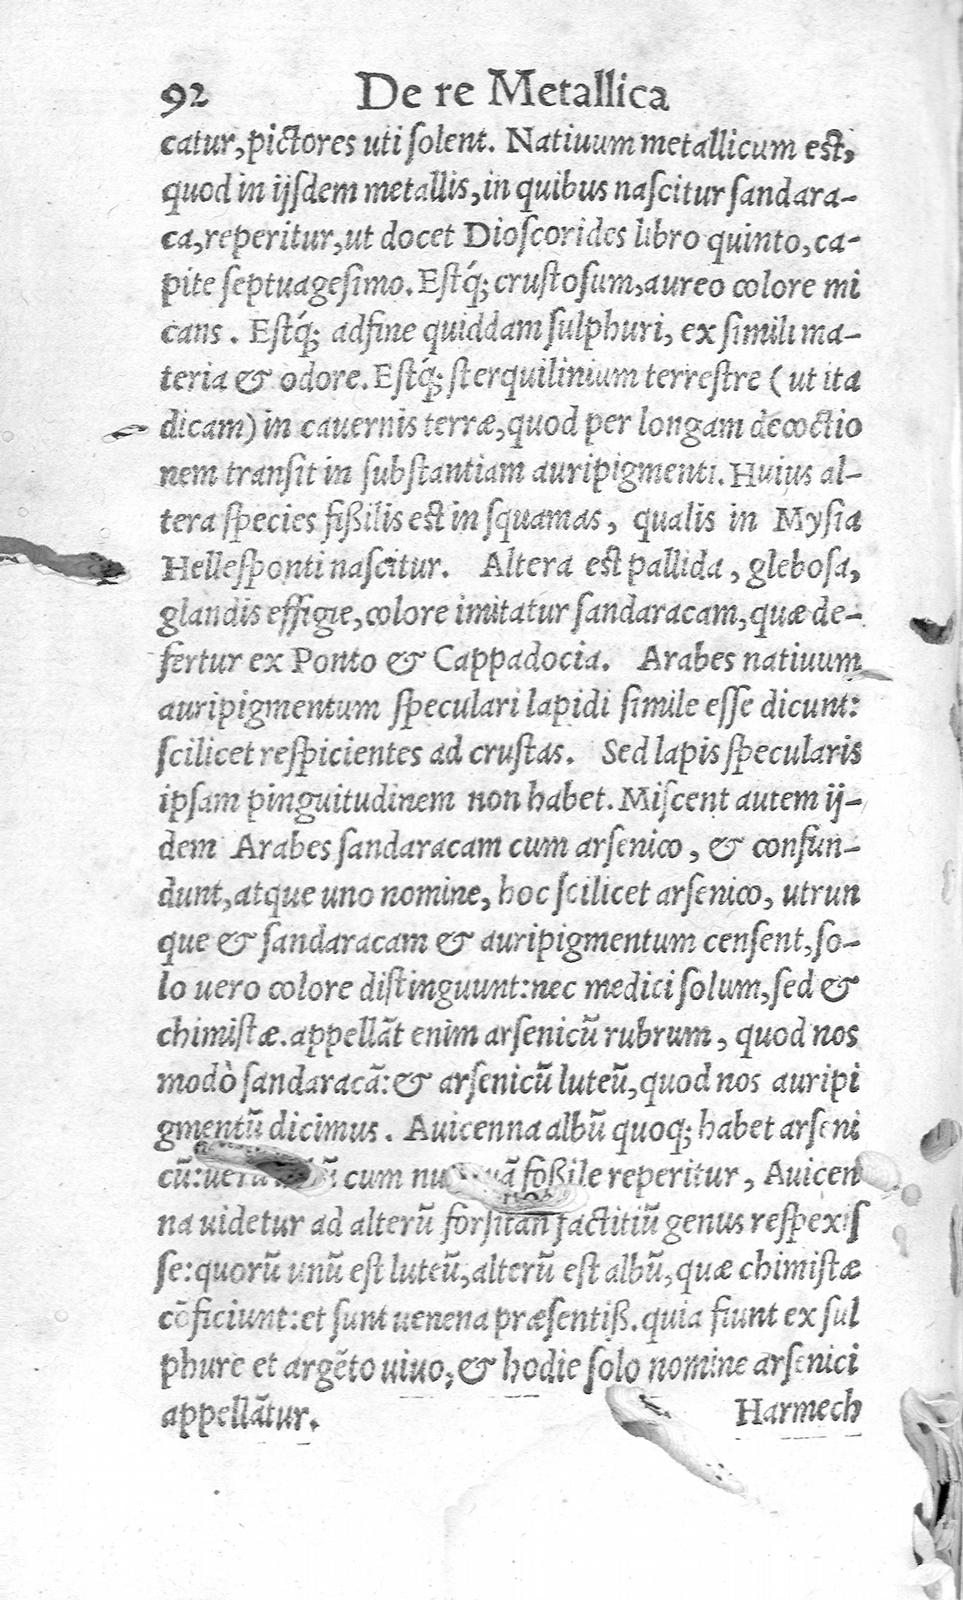 92 De re Metallica
catur, pictores uti ſolent. Natiuum metallicum est,
quod in ijſdem metallis, in quibus naſcitur ſandara-
ca, reperitur, ut docet Dioſcorides libro quinto, ca-
pite ſeptuageſimo. Eſtq́; cruſtoſum, aureo colore mi
cans. Eſtq́; adfine quiddam ſulphuri, ex ſimili ma-
teria & odore. Eſtq́; ſterquilinium terreſtre ( ut ita
dicam) in cauernis terræ, quod per longam decoctio
nem tranſit in ſubſtantiam auripigmenti. Huius al-
tera ſpecies fißilis est in ſquamas, qualis in Myſia
Helleſponti naſcitur. Altera est pallida, gleboſa,
glandis effigie, colore imitatur ſandaracam, quæ de-
fertur ex Ponto & Cappadocia. Arabes natiuum
auripigmentum ſpeculari lapidi ſimile eſſe dicunt:
ſcilicet reſpicientes ad cruſtas. Sed lapis ſpecularis
ipſam pinguitudinem non habet. Miſcent autem ij-
dem Arabes ſandaracam cum arſenico, & confun-
dunt, atque uno nomine, hoc ſcilicet arſenico, utrun
que & ſandaracam & auripigmentum cenſent, ſo-
lo uero colore diſtinguunt: nec medici ſolum, ſed &
chimiſtæ. appellãt enim arſenicũ rubrum, quod nos
modò ſandaracã: & arſenicũ luteũ, quod nos auripi
gmentũ dicimus. Auicenna albũ quoq; habet arſeni
cũ: cum foßile reperitur, Auicen
na uidetur ad alterũ forſitan factitiũ genus reſpexiſ
ſe: quorũ unũ eſt luteũ, alterũ eſt albũ, quæ chimiſtæ
cõficiunt: et ſunt uenena præſentiß. quia fiunt ex ſul
phure et argẽto uiuo, & hodie ſolo nomine arſenici
appellãtur. Harmech